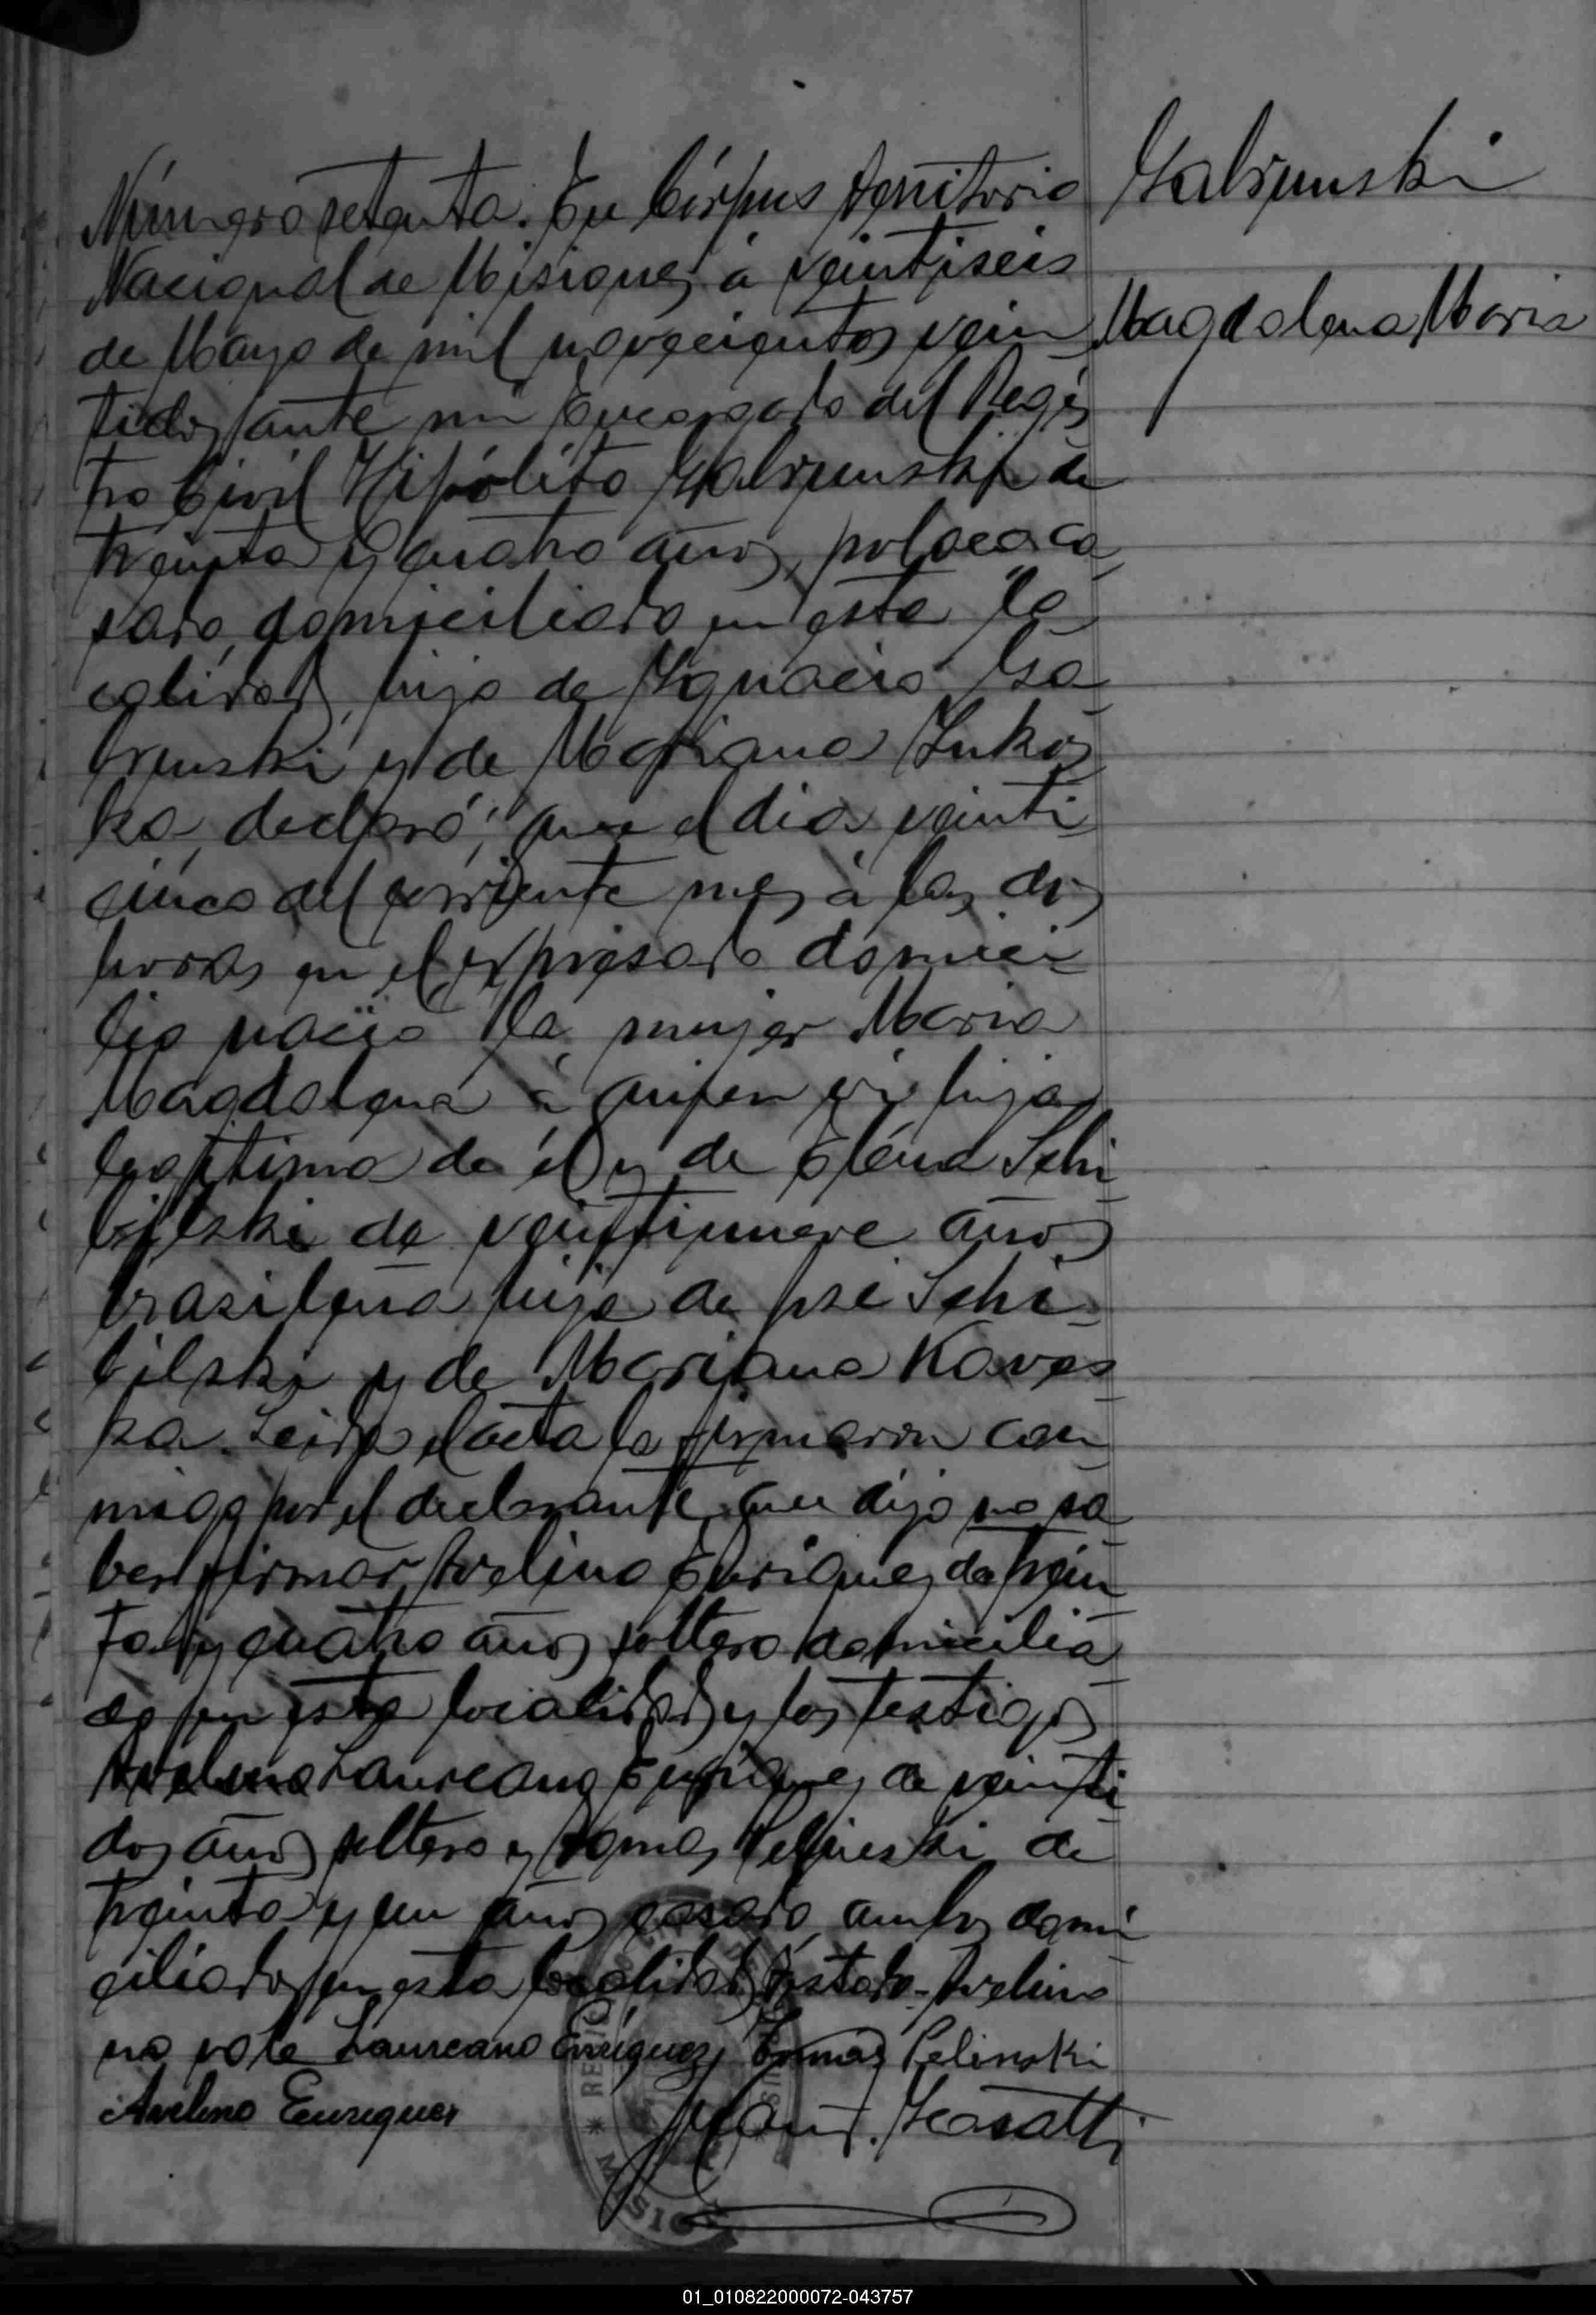 Número setenta. En Córpus territorio
Nacional de Misiones á veintiseis
de Mayo de mil novecientos vein
tidos ante mi Encargado del Regis
tro Civil Hipólito Gabrunski de
treinta y cuatro años, polaco, ca
sado, domiciliado en esta lo
calidad, hijo de Ignacio Ga
brunski y de Mariana Lukos
ka, declaró; que el dia veinti
cinco del corriente mes á las dos
horas en el expresado domici
lio nació la mujer Maria
Magdalena á quien vi hija
legitima de él y de Eléna Schi
bilski de veintinueve años
brasileña hija de José Schi
bilski y de Mariana Kaves
ka. Leida el acta la firmaron con
migo por el declarante que dijo no sa
ber firmar, Avelino Enriquez de trein
ta y cuatro años soltero domicilia
do en esta localidad y los testigos
Laureano Enriquez de veinti
dos años soltero y Tomas Pelinski de
treinta y un años casado, ambos domi
ciliados en esta localidad. Testado-Avelino
no vale Laureano Enriquez Tomas Pelinski
Avelino Enriquez
Gabrunski
Magdalena Maria
01_010822000072-043757